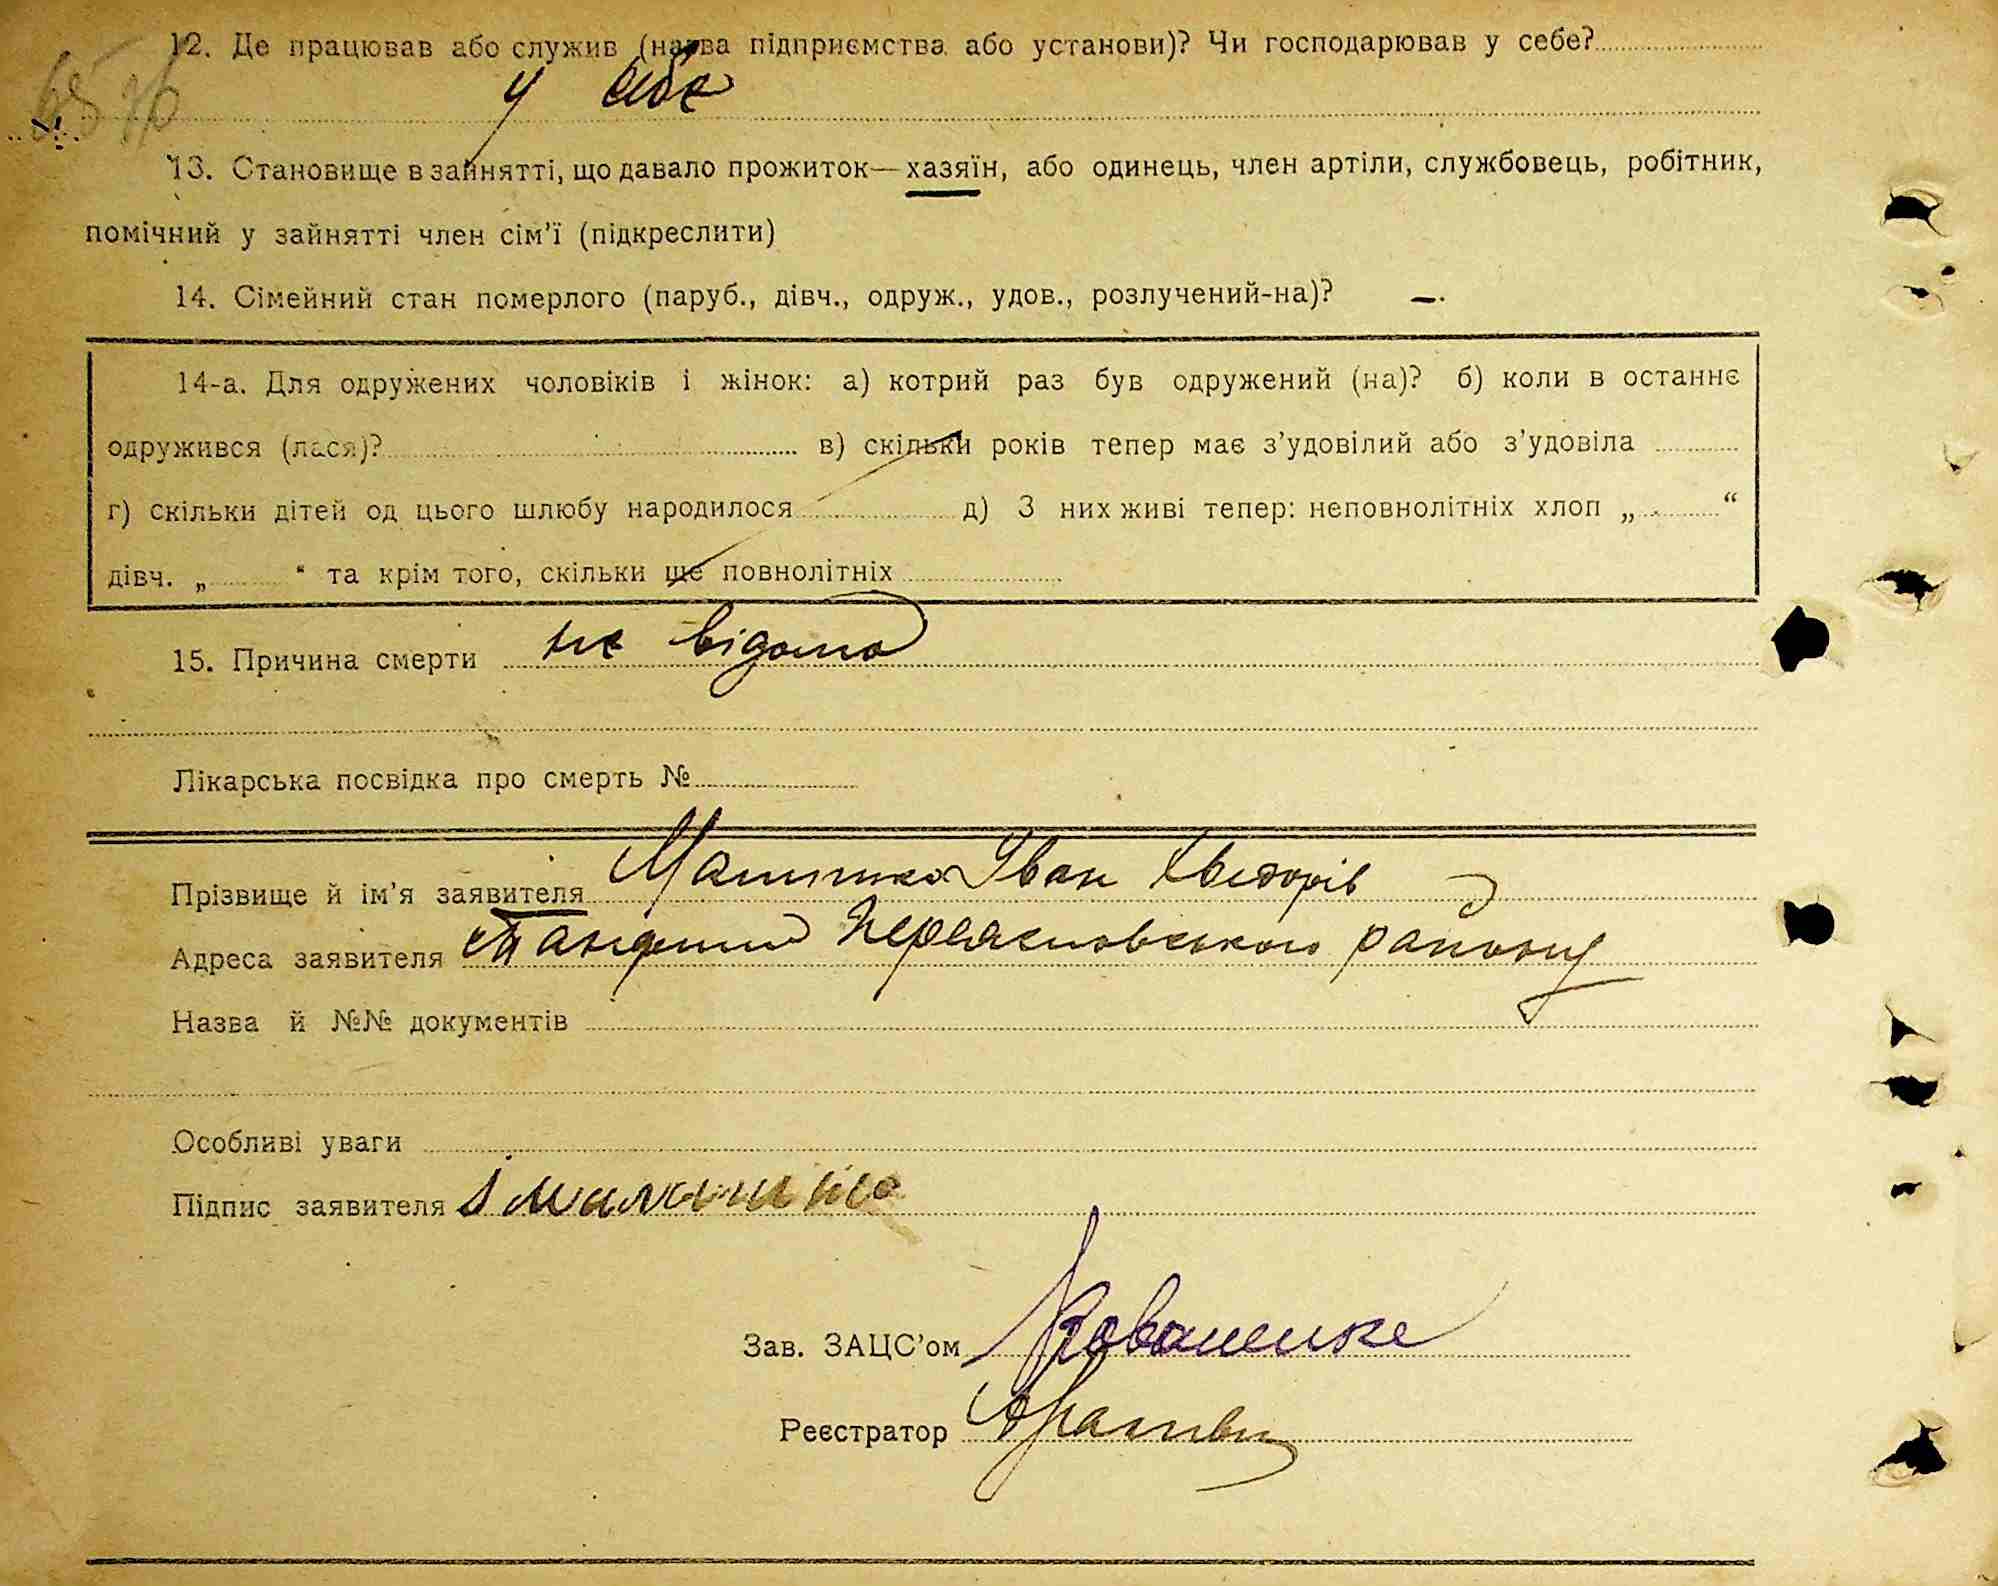 12. Де працював або служив (назва підприємства або установи)? Чи господарював у себе?
у себе
13. Становище в зайнятті, що давало прожиток—хазяїн, або одинець, член артіли, службовець, робітник,
помічний у зайнятті член сім'ї (підкреслити)
14. Сімейний стан померлого (паруб., дівч., одруж., удов., розлучений-на)? —.
14-а. Для одружених чоловіків і жінок: а) котрий раз був одружений (на)? б) коли в останнє
одружився (лася)? в) скільки років тепер має з'удовілий або з'удовіла
г) скільки дітей од цього шлюбу народилося д) З них живі тепер: неповнолітніх хлоп „ “
дівч. „ “ та крім того, скільки ще повнолітніх
15. Причина смерти не відома
Лікарська посвідка про смерть №
Прізвище й ім'я заявителя Іван Хведорів
Адреса заявителя Переяславського району
Назва й №№ документів
Особливі уваги
Підпис заявителя
Зав. ЗАЦС'ом
Реєстратор